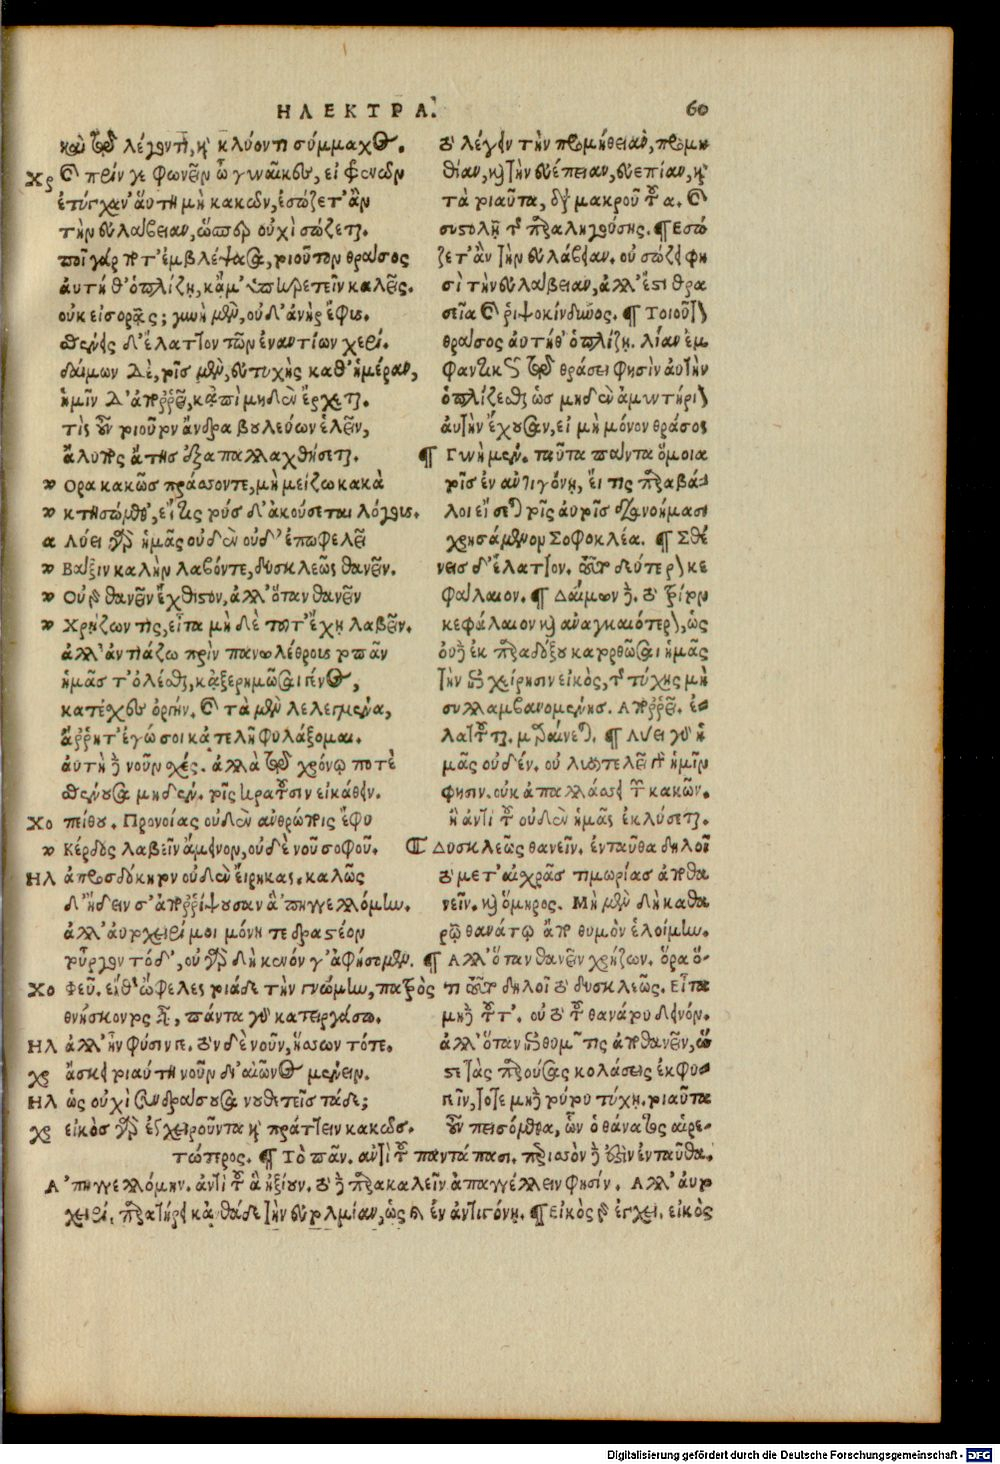 ΗΛΕΚΤΡΑ. 60
καὶ τῷ λέγοντι, καὶ κλύοντι σύμμαχος.
Χο καὶ πρίν γε φωνεῖν ὦ γυναῖκες, εἰ φρενῶν
ἐτύγχαν' ἅυτη μὴ κακῶν, ἐσώζετ' ἂν
τὴν εὐλάβειαν, ὥσπερ οὐχὶ σώζεται.
ποῖ γάρ ποτ' ἐμβλέψασα, τοιοῦτον θράσος
ἀυτή θ' ὁπλίζῃ, κἄμ' ὑπηρετεῖν καλεῖς.
οὐκ εἰσορᾷς; γυνὴ μὲν, οὐδ' ἀνὴρ ἔφυς.
σθένεις δ' ἔλαττον τῶν ἐναντίων χερί.
δαίμων δὲ, τοῖς μὲν, εὐτυχὴς καθ' ἡμέραν,
ἡμῖν δ' ἀπορρεῖ, κἀπὶ μηδὲν ἔρχεται.
τίς οὖν τοιοῦτον ἄνδρα βουλεύων ἑλεῖν,
ἄλυπος ἄτης ἐξαπαλλαχθήσεται.
Ορα κακῶς πράσσοντε, μὴ μείζω κακὰ
κτησώμεθ', εἴ τις τούσδ' ἀκούσεται λόγους.
Λύει γὰρ ἡμᾶς οὐδὲν οὐδ' ἐπωφελεῖ
Βάξιν καλὴν λαβόντε, δυσκλεῶς θανεῖν.
Οὐ γὰρ θανεῖν ἔχθιστον, ἀλλ' ὅταν θανεῖν
Χρῄζων τις, εἶτα μὴ δὲ τοῦτ' ἔχῃ λαβεῖν.
ἀλλ' ἀντιάζω πρὶν πανωλέθρους τὸ πᾶν
ἡμᾶς τ' ὀλέσθαι, κἀξερημῶσαι γένος,
κατέχες ὀργήν. καὶ τὰ μὲν λελεγμένα,
ἄρρητ' ἐγώ σοι κἀτελῆ φυλάξομαι.
ἀυτὴ δὲ νοῦν σχές. ἀλλὰ τῷ χρόνῳ ποτὲ
σθένουσα μηδὲν. τοῖς κρατοῦσιν εἰκάθειν.
Χο πείθου. Προνοίας οὐδὲν ἀνθρώποις ἔφυ
Κέρδος λαβεῖν ἄμεινον, οὐδὲ νοῦ σοφοῦ.
Ηλ ἀπροσδόκητον οὐδὲν εἴρηκας. καλῶς
δ' ᾔδειν σ' ἀπορρίψουσαν ἃ 'πηγγελλόμην.
ἀλλ' ἀυτοχειρί μοι μόνῃ τε δραστέον
τοὖργον τόδ', οὐ γὰρ δὴ κενόν γ' ἀφήσομεν.
Χο Φεῦ. εἴθ' ὤφελες τοιάδε τὴν γνώμην, πατρὸς
θνήσκοντος εἶναι, πάντα γὰρ κατειργάσω.
Ηλ ἀλλ' ἦν φύσιν γε. τὸν δὲ νοῦν, ἥσσων τότε.
χρ ἄσκει τοιαύτη νοῦν δι' αἰῶνος μένειν.
Ηλ ὡς οὐχὶ συνδράσουσα νουθετεῖς τάδε;
χρ εἰκὸς γὰρ ἐγχειροῦντα καὶ πράττειν κακῶς.
τὸ λέγειν τὴν προμήθειαν, προμη-
θίαν, καὶ τὴν εὐέπειαν, εὐεπίαν, καὶ
τὰ τοιαῦτα, διὰ μακροῦ τοῦ α. καὶ
συστολῇ τῆς παραληγούσης. ¶ Εσώ
ζετ' ἂν τὴν εὐλάβειαν. οὐ σώζει φη
σὶ τὴν εὐλάβειαν, ἀλλ' ἔστι θρα
σεῖα καὶ ῥιψοκίνδυνος. ¶ Τοιοῦτον
θράσος ἀυτήθ' ὁπλίζῃ. λίαν ἐμ
φαντικῶς τῷ θράσει φησὶν ἀυτὴν
ὁπλίζεσθαι ὡς μηδὲν ἀμυντήριον
ἀυτὴν ἔχουσαν, εἰ μὴ μόνον θράσος
¶ Γυνὴ μέν. ταῦτα πάντα ὅμοια
τοῖς ἐν ἀντιγόνῃ, εἴ τις παραβά-
λοι εἴσεται τοῖς ἀυτοῖς διανοήμασι
χρησάμενον Σοφοκλέα. ¶ Σθέ
νεις δ' ἔλαττον. τοῦτο δεύτερον κε
φάλαιον. ¶ Δαίμων δὲ. τὸ τρίτον
κεφάλαιον καὶ ἀναγκαιότερον, ὡς
οὐδὲ ἐκ παραδόξου κατορθῶσαι ἡμᾶς
τὴν ἐγχείρησιν εἰκὸς, τῆς τύχης μὴ
συλλαμβανομένης. Απορρεῖ. ἐ-
λαττοῦται. μαραίνεται. ¶ Λύει γὰρ ἡ
μᾶς οὐδέν. οὐ λυσιτελεῖ ἡμῖν
φησιν. οὐκ ἀπαλλάσσει τῶν κακῶν.
ἢ ἀντὶ τοῦ οὐδὲν ἡμᾶς ἐκλύσεται.
¶ Δυσκλεῶς θανεῖν. ἐνταῦθα δηλοῖ
τὸ μετ' αἰσχρᾶς τιμωρίας ἀποθα
νεῖν. καὶ ὅμηρος. Μὴ μὲν δὴ καθα
ρῷ θανάτῳ ἀπὸ θυμὸν ἑλοίμην.
¶ Αλλ' ὅταν θανεῖν χρῄζων. ὅρα ὅ-
τι τοῦτο δηλοῖ τὸ δυσκλεῶς. Εἶτα
μηδὲ τοῦτ'. οὐ τὸ τοῦ θανάτου δεινόν.
ἀλλ' ὅταν ἐπιθυμῶν τις ἀποθανεῖν, ὥ
στε τὰς παρούσας κολάσεις ἐκφυ-
γεῖν, τότε μηδὲ τούτου τύχῃ. τοιαῦτα
οὖν πεισόμεθα, ὧν ὁ θάνατος αἱρε-
τώτερος. ¶ Τὸ πᾶν. ἀντὶ τοῦ παντάπασι. περισσὸν δὲ ἐστιν ἐνταῦθα.
Α 'πηγγελλόμην. ἀντὶ τοῦ ἃ ἠξίουν. τὸ δὲ παρακαλεῖν ἀπαγγέλλειν φησίν. Αλλ' ἀυτο
χειρί. παρατηρεῖ κἀνθάδε τὴν εὐτολμίαν, ὡς καὶ ἐν ἀντιγόνῃ. ¶ Εἰκὸς γὰρ ἐγχει. εἰκὸς
Digitalisierung gefördert durch die Deutsche Forschungsgemeinschaft - DFG